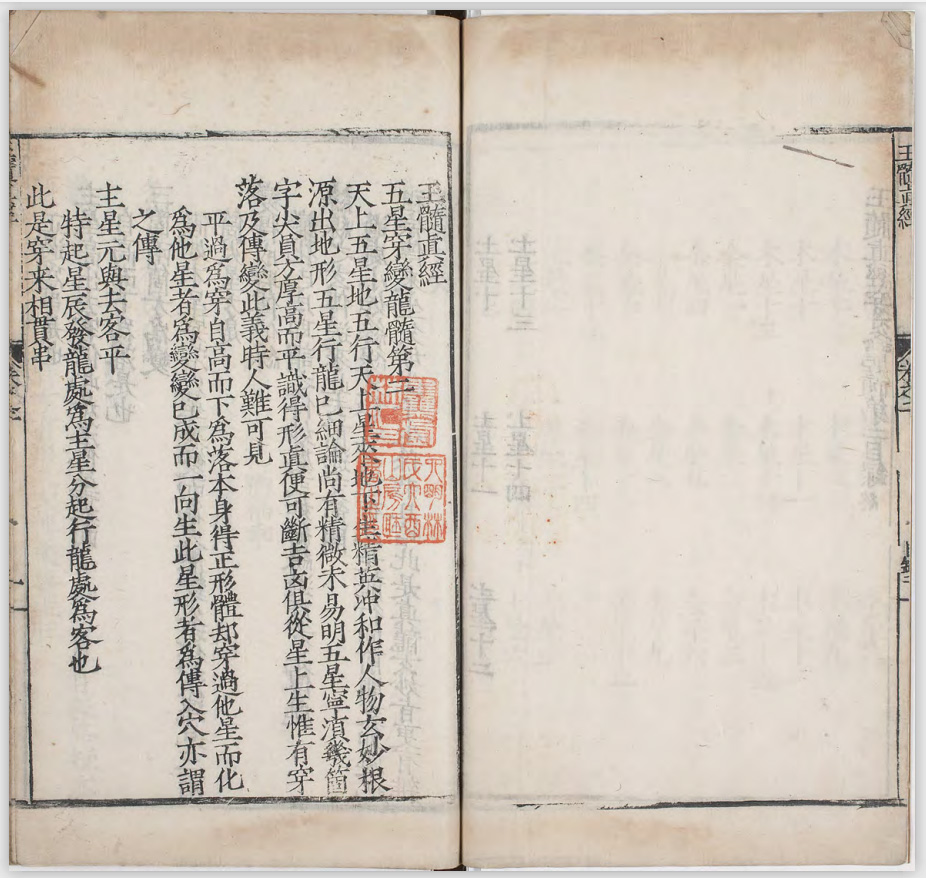 玉髓真經
五星穿變龍髓第二
天上五星地五行天上星來地下生精英沖和作人物玄妙根
源出地形五星行龍已細論尚有精微未易明五星寧湏幾箇
字尖負方厚高而平識得形真便可斷吉凶俱從星上生惟有穿
落及傳變此義時人難可見
平過爲穿自高而下爲落本身得正形體却穿過他星而化
爲他星者爲變變已成而一向生此星形者爲傳入穴亦謂
之傳
主星元與去客平
特起星辰發龍處爲主星分起行龍處爲客也
此是穿来相貫串
玉髓真經
卷之二